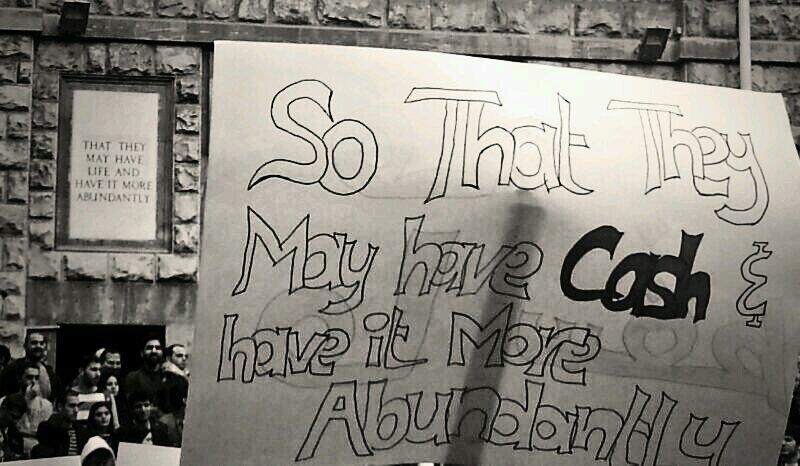 THAT THEY
MAY HAVE
LIFE AND
HAVE IT MORE
ABUNDANTLY
So That They
May have Cash &
have it More
Abundantly